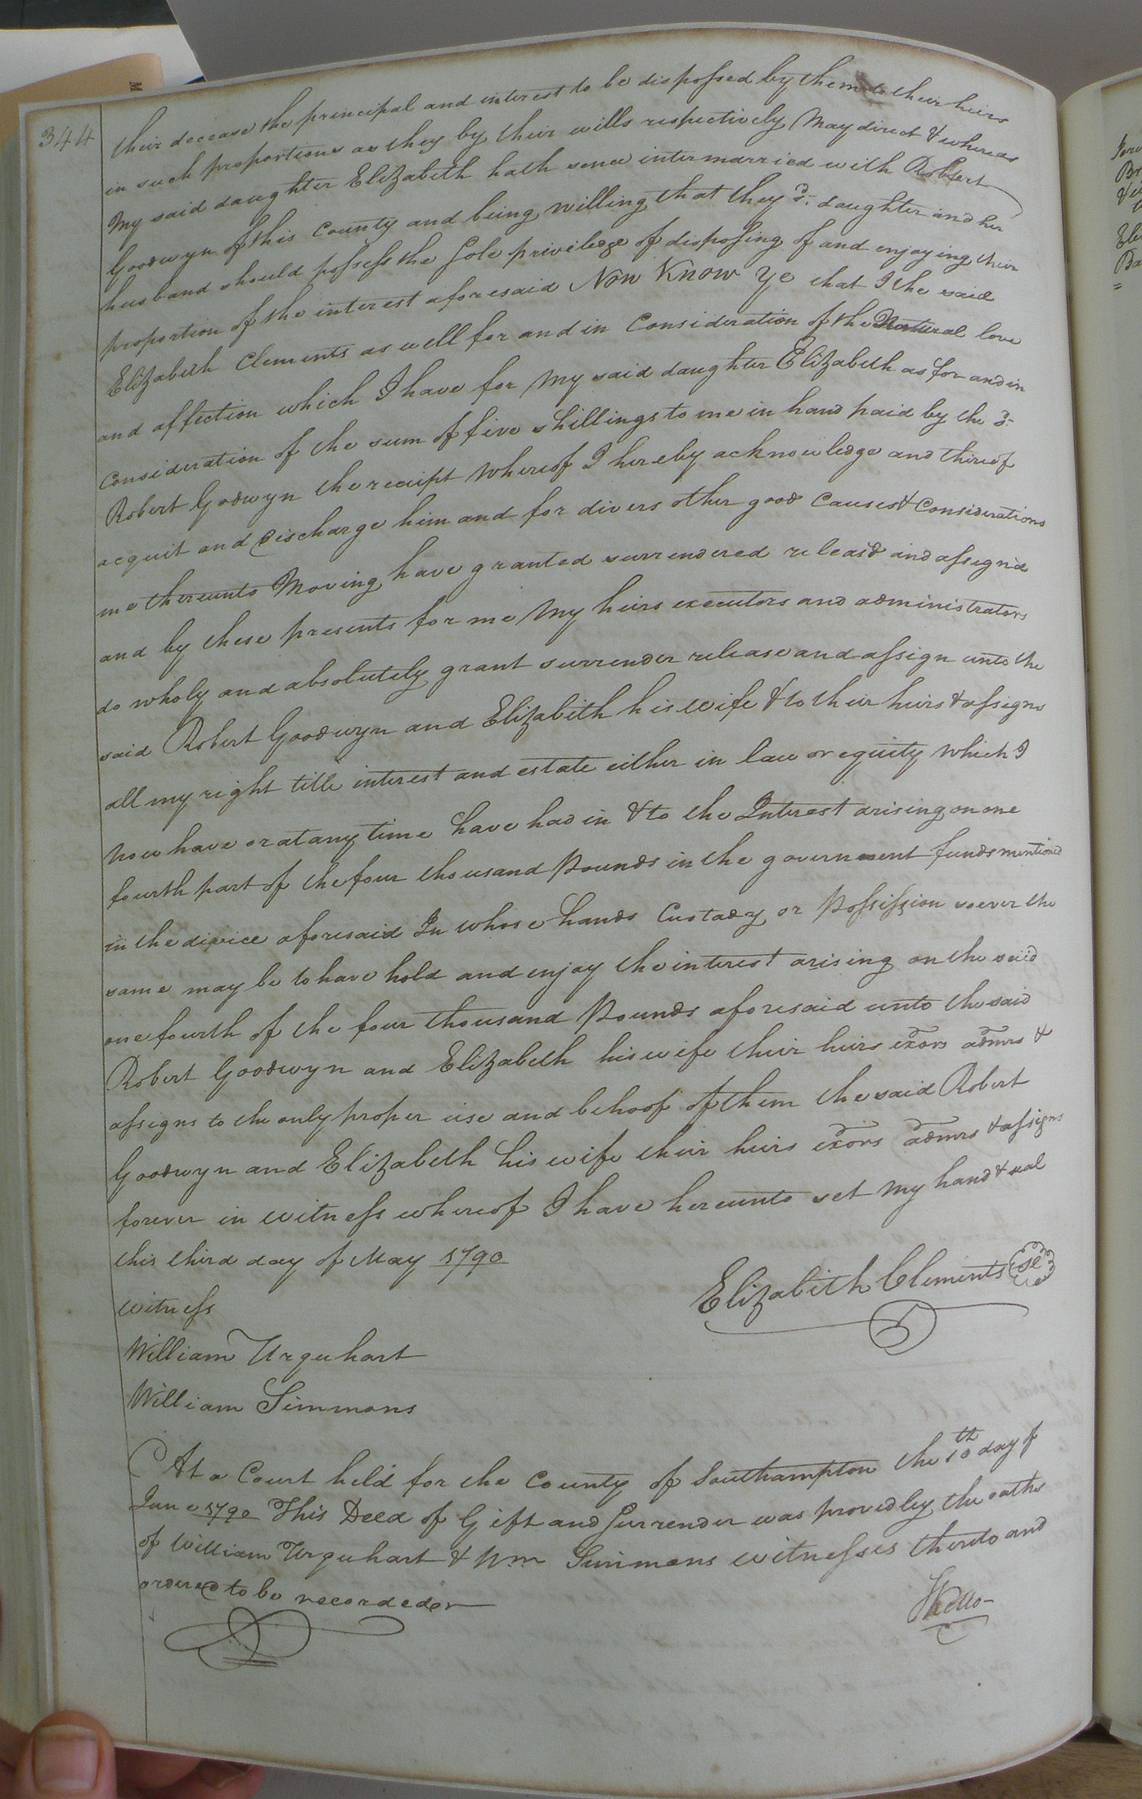 344
their decease the principal and interest to be dispossed by them to their heirs
in such proportions as they by their wills respectively May direct & whereas
My said daughter Elizabeth hath sence intermarried with Robert
Goodwyn of this County and being willing that they sd. daughter and her
husband should possess the Sole priviledge of disposing of and enjoying their
proportion of the interest aforesaid Now Know Ye that I the said
Elizabeth Clements as well for and in Consideration of the Natural love
and affection which I have for My said daughter Elizabeth as for and in
Consideration of the sum of five shillings to me in hand paid by the sd.
Robert Godwyn the receipt Whereof I hereby acknowledge and thereof
acquit and discharge him and for divers other good Causes & Considerations
me thereunto Moving have granted surrendered releasd and assignd
and by these presents for me My heirs executors and administrators
do wholy and absolutely grant surrender release and assign unto the
said Robert Goodwyn and Elizabeth his wife & to their heirs & assigns
all my right title interest and estate either in law or equity Which I
now have or at any time have had in & to the Interest arising on one
fourth part of the four thousand Pounds in the government funds mentiond
in the divice aforesaid In whose hands Custady or Possission soever the
same may be to have hold and enjoy the interest arising on the said
one fourth of the four thousand Pounds aforesaid unto the said
Robert Goodwyn and Elizabeth his wife their heirs exors admrs &
assigns to the only proper use and behoof of them the said Robert
Goodwyn and Elizabeth his wife their heirs exors admrs & assigns
forever in witness whereof I have hereunto set My hand & seal
this third day of May 1790
Elizabeth Clements Se
witness
William Urquhart
William Simmons
At a Court held for the County of Southampton the 10th day of
June 1790 This Deed of Gift and Surrender was proved by the oaths
of William Urquhart & Wm Simmons witnesses thereto and
ordered to be recorded